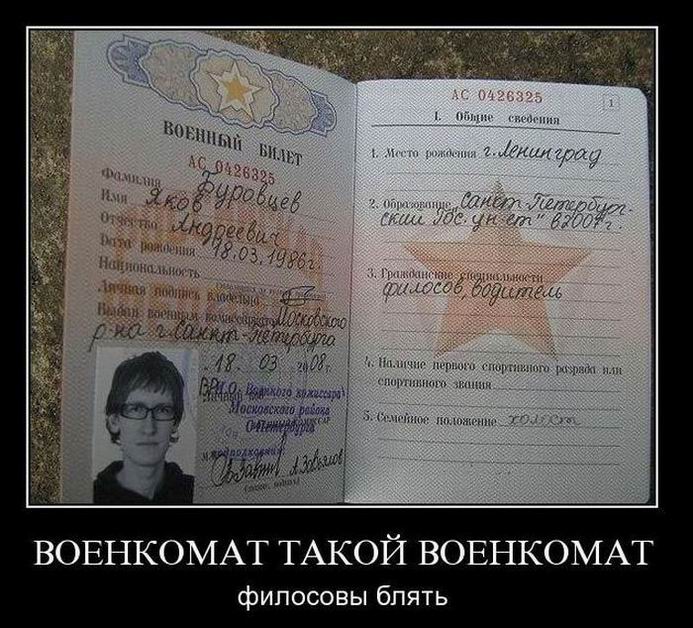 ВОЕННЫЙ БИЛЕТ
АС 0426325
Фамилия Буровцев
Имя Яков
Отчество Андреевич
Дата рождения 18.03.1986г.
Национальность
Личная подпись владельца
Выдан военным комиссариатом Московского
р-на г. Санкт-Петербурга
18. 03 2008г.
ВР.И.О. Военного комиссара
Московского района
С-Петербурга
подполковник
А.Завьялов
АС 0426325
1
I. Общие сведения
1. Место рождения г. Ленинград
2. Образование „Санкт-Петербург-
ский Гос. ун-ет" в 2007г.
3. Гражданские специальности
филосов, водитель
4. Наличие первого спортивного разряда или
спортивного звания
5. Семейное положение холост
ВОЕНКОМАТ ТАКОЙ ВОЕНКОМАТ
филосовы блять